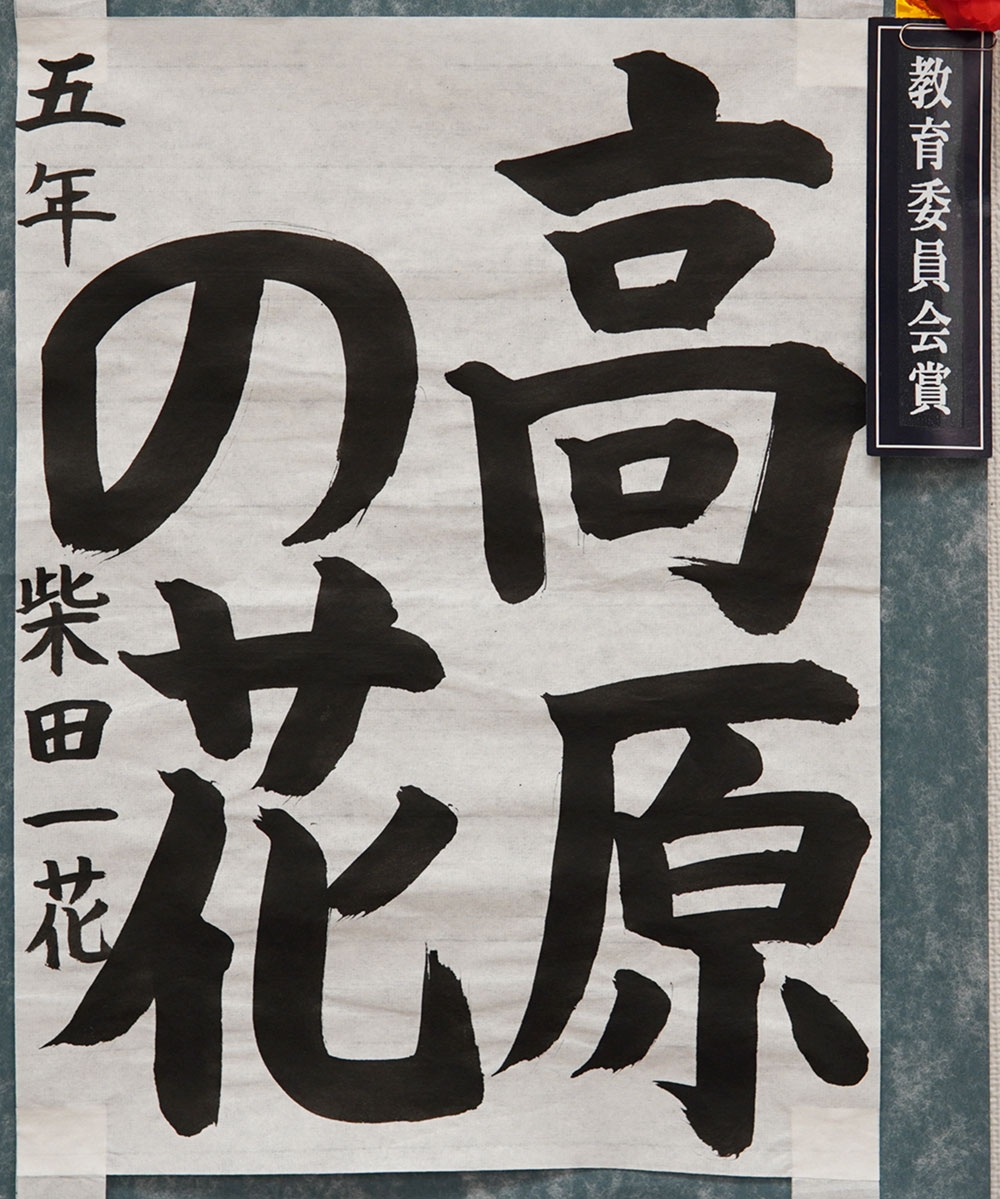 教育委員会賞
高原
の花
五年 柴田一花